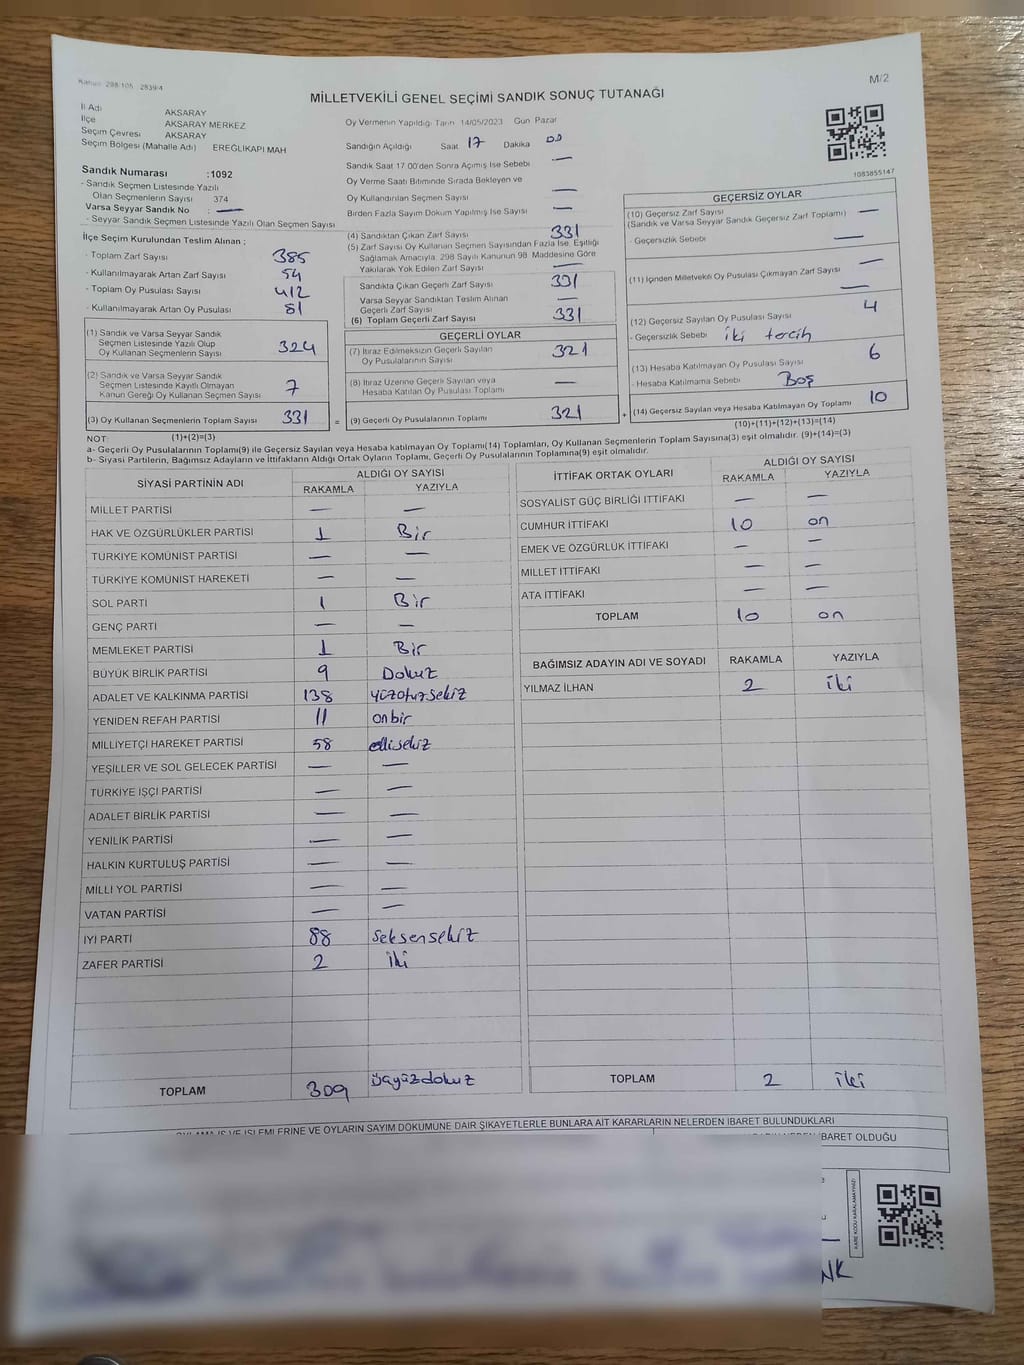 Kanun: 298/105 2839/4
M/2
MİLLETVEKİLİ GENEL SEÇİMİ SANDIK SONUÇ TUTANAĞI
İl Adı AKSARAY
İlçe AKSARAY MERKEZ
Seçim Çevresi AKSARAY
Seçim Bölgesi (Mahalle Adı) EREĞLİKAPI MAH
Sandık Numarası :1092
- Sandık Seçmen Listesinde Yazılı
Olan Seçmenlerin Sayısı 374
Varsa Seyyar Sandık No : —
- Seyyar Sandık Seçmen Listesinde Yazılı Olan Seçmen Sayısı
Oy Vermenin Yapıldığı Tarih 14/05/2023 Gün Pazar
Sandığın Açıldığı Saat 17 Dakika 00
Sandık Saat 17.00'den Sonra Açımış İse Sebebi —
Oy Verme Saati Bitiminde Sırada Bekleyen ve
Oy Kullandırılan Seçmen Sayısı —
Birden Fazla Sayım Döküm Yapılmış İse Sayısı —
1083855147
İlçe Seçim Kurulundan Teslim Alınan ;
- Toplam Zarf Sayısı 385
- Kullanılmayarak Artan Zarf Sayısı 54
- Toplam Oy Pusulası Sayısı 412
- Kullanılmayarak Artan Oy Pusulası 81
(1) Sandık ve Varsa Seyyar Sandık
Seçmen Listesinde Yazılı Olup
Oy Kullanan Seçmenlerin Sayısı 324
(2) Sandık ve Varsa Seyyar Sandık
Seçmen Listesinde Kayıtlı Olmayan
Kanun Gereği Oy Kullanan Seçmen Sayısı 7
(3) Oy Kullanan Seçmenlerin Toplam Sayısı 331 =
(4) Sandıktan Çıkan Zarf Sayısı 331
(5) Zarf Sayısı Oy Kullanan Seçmen Sayısından Fazla İse, Eşitliği
Sağlamak Amacıyla, 298 Sayılı Kanunun 98. Maddesine Göre
Yakılarak Yok Edilen Zarf Sayısı —
Sandıkta Çıkan Geçerli Zarf Sayısı 331
Varsa Seyyar Sandıktan Teslim Alınan
Geçerli Zarf Sayısı —
(6) Toplam Geçerli Zarf Sayısı 331
GEÇERLİ OYLAR
(7) İtiraz Edilmeksizin Geçerli Sayılan
Oy Pusulalarının Sayısı 321
(8) İtiraz Üzerine Geçerli Sayılan veya
Hesaba Katılan Oy Pusulası Toplamı —
(9) Geçerli Oy Pusulalarının Toplamı 321 +
GEÇERSİZ OYLAR
(10) Geçersiz Zarf Sayısı —
(Sandık ve Varsa Seyyar Sandık Geçersiz Zarf Toplamı)
- Geçersizlik Sebebi —
(11) İçinden Milletvekili Oy Pusulası Çıkmayan Zarf Sayısı —
—
(12) Geçersiz Sayılan Oy Pusulası Sayısı 4
- Geçersizlik Sebebi iki tercih
(13) Hesaba Katılmayan Oy Pusulası Sayısı 6
- Hesaba Katılmama Sebebi Boş
(14) Geçersiz Sayılan veya Hesaba Katılmayan Oy Toplamı 10
(10)+(11)+(12)+(13)=(14)
NOT: (1)+(2)=(3)
a- Geçerli Oy Pusulalarının Toplamı(9) ile Geçersiz Sayılan veya Hesaba katılmayan Oy Toplamı(14) Toplamları, Oy Kullanan Seçmenlerin Toplam Sayısına(3) eşit olmalıdır. (9)+(14)=(3)
b- Siyasi Partilerin, Bağımsız Adayların ve İttifakların Aldığı Ortak Oyların Toplamı, Geçerli Oy Pusulalarının Toplamına(9) eşit olmalıdır.
SİYASİ PARTİNİN ADI ALDIĞI OY SAYISI
RAKAMLA YAZIYLA
MİLLET PARTİSİ — —
HAK VE ÖZGÜRLÜKLER PARTİSİ 1 Bir
TÜRKİYE KOMÜNİST PARTİSİ — —
TÜRKİYE KOMÜNİST HAREKETİ — —
SOL PARTİ 1 Bir
GENÇ PARTİ — —
MEMLEKET PARTİSİ 1 Bir
BÜYÜK BİRLİK PARTİSİ 9 Dokuz
ADALET VE KALKINMA PARTİSİ 138 yüzotuzsekiz
YENİDEN REFAH PARTİSİ 11 onbir
MİLLİYETÇİ HAREKET PARTİSİ 58 ellisekiz
YEŞİLLER VE SOL GELECEK PARTİSİ — —
TÜRKİYE İŞÇİ PARTİSİ — —
ADALET BİRLİK PARTİSİ — —
YENİLİK PARTİSİ — —
HALKIN KURTULUŞ PARTİSİ — —
MİLLİ YOL PARTİSİ — —
VATAN PARTİSİ — —
İYİ PARTİ 88 seksensekiz
ZAFER PARTİSİ 2 iki
TOPLAM 309 üçyüzdokuz
İTTİFAK ORTAK OYLARI ALDIĞI OY SAYISI
RAKAMLA YAZIYLA
SOSYALİST GÜÇ BİRLİĞİ İTTİFAKI — —
CUMHUR İTTİFAKI 10 on
EMEK VE ÖZGÜRLÜK İTTİFAKI — —
MİLLET İTTİFAKI — —
ATA İTTİFAKI — —
TOPLAM 10 on
BAĞIMSIZ ADAYIN ADI VE SOYADI RAKAMLA YAZIYLA
YILMAZ İLHAN 2 iki
TOPLAM 2 iki
OYLAMA İŞ VE İŞLEMLERİNE VE OYLARIN SAYIM DÖKÜMÜNE DAİR ŞİKAYETLERLE BUNLARA AİT KARARLARIN NELERDEN İBARET BULUNDUKLARI
İBARET OLDUĞU
KARE KODU KARALAMAYINIZ!